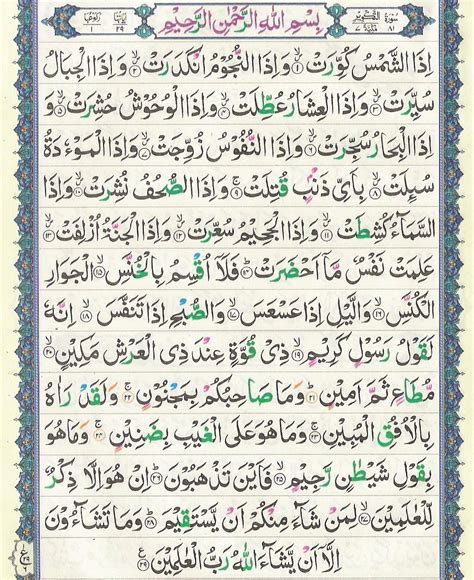 سُوْرَةُ التَّكْوِيْرِ ٨١ مَكِّيَّةٌ ٧
بِسْمِ اللهِ الرَّحْمٰنِ الرَّحِيْمِ
اٰيَاتُهَا ٢٩ رُكُوْعُهَا ١
اِذَا الشَّمْسُ كُوِّرَتْ ۝١ وَاِذَا النُّجُوْمُ انْكَدَرَتْ ۝٢ وَاِذَا الْجِبَالُ
سُيِّرَتْ ۝٣ وَاِذَا الْعِشَارُ عُطِّلَتْ ۝٤ وَاِذَا الْوُحُوْشُ حُشِرَتْ ۝٥ وَ
اِذَا الْبِحَارُ سُجِّرَتْ ۝٦ وَاِذَا النُّفُوْسُ زُوِّجَتْ ۝٧ وَاِذَا الْمَوْءٗدَةُ
سُئِلَتْ ۝٨ بِاَيِّ ذَنْۢبٍ قُتِلَتْ ۝٩ وَاِذَا الصُّحُفُ نُشِرَتْ ۝١٠ وَاِذَا
السَّمَآءُ كُشِطَتْ ۝١١ وَاِذَا الْجَحِيْمُ سُعِّرَتْ ۝١٢ وَاِذَا الْجَنَّةُ اُزْلِفَتْ ۝١٣
عَلِمَتْ نَفْسٌ مَّاۤ اَحْضَرَتْ ۝١٤ فَلَاۤ اُقْسِمُ بِالْخُنَّسِ ۝١٥ الْجَوَارِ
الْكُنَّسِ ۝١٦ وَالَّيْلِ اِذَا عَسْعَسَ ۝١٧ وَالصُّبْحِ اِذَا تَنَفَّسَ ۝١٨ اِنَّهٗ
لَقَوْلُ رَسُوْلٍ كَرِيْمٍ ۝١٩ ذِيْ قُوَّةٍ عِنْدَ ذِي الْعَرْشِ مَكِيْنٍ ۝٢٠
مُّطَاعٍ ثَمَّ اَمِيْنٍ ۝٢١ وَمَا صَاحِبُكُمْ بِمَجْنُوْنٍ ۝٢٢ وَلَقَدْ رَاٰهُ
بِالْاُفُقِ الْمُبِيْنِ ۝٢٣ وَمَا هُوَ عَلَى الْغَيْبِ بِضَنِيْنٍ ۝٢٤ وَمَا هُوَ
بِقَوْلِ شَيْطٰنٍ رَّجِيْمٍ ۝٢٥ فَاَيْنَ تَذْهَبُوْنَ ۝٢٦ اِنْ هُوَ اِلَّا ذِكْرٌ
لِّلْعٰلَمِيْنَ ۝٢٧ لِمَنْ شَآءَ مِنْكُمْ اَنْ يَّسْتَقِيْمَ ۝٢٨ وَمَا تَشَآءُوْنَ
اِلَّاۤ اَنْ يَّشَآءَ اللهُ رَبُّ الْعٰلَمِيْنَ ۝٢٩